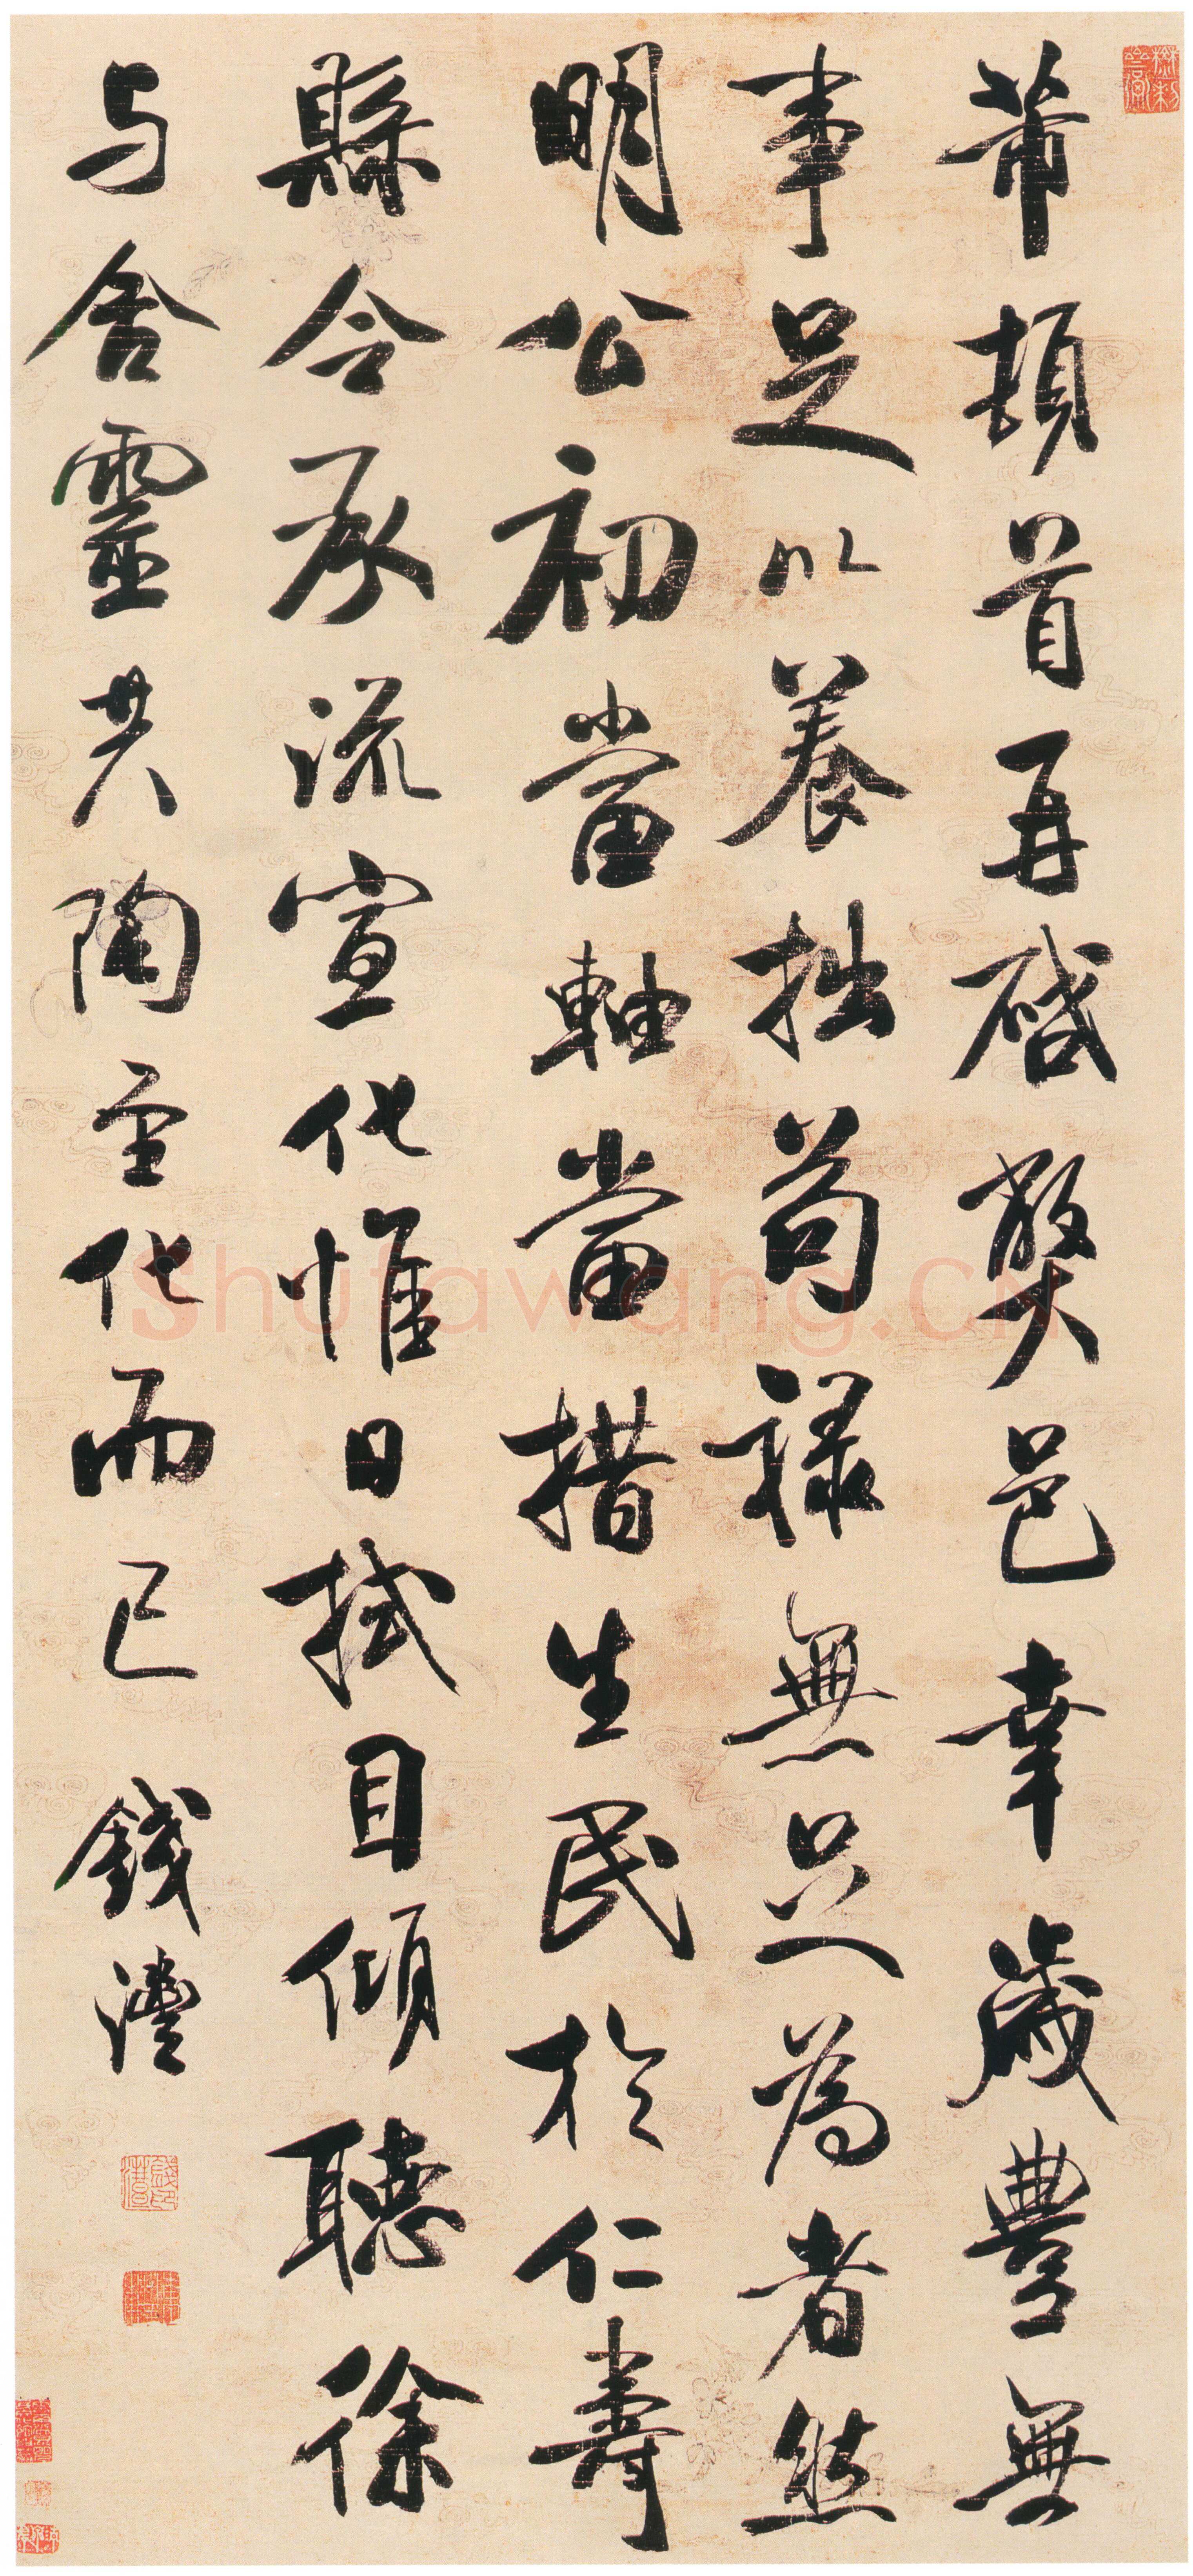 芾頓首再啓弊邑幸歲豐無
事足以養拙苟禄無足為者然
明公初當軸當措生民於仁壽
縣令承流宣化惟日拭目傾聽徐
与含靈共陶至化而已 錢灃
Shufawang.cn